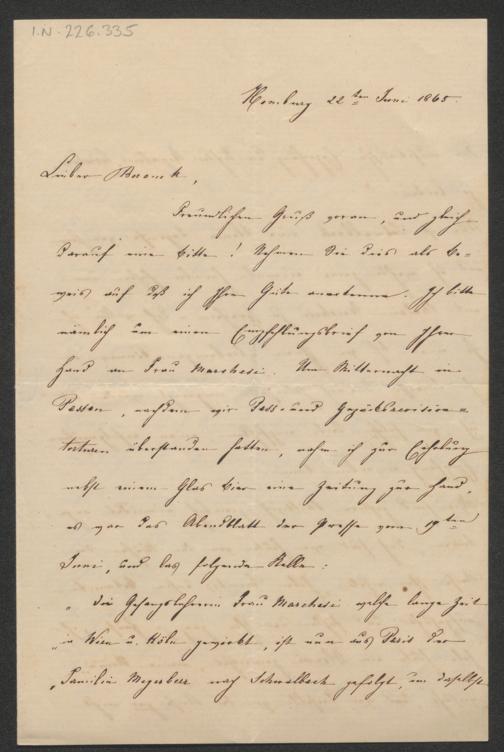 I.N. 226.335
Homburg 22ten Juni 1865.
Lieber Baron k,
Freundlichen Gruß voran, und gleich
darauf eine Bitte! Nehmen Sie dies als Be-
weis auf daß ich Ihre Güte anerkenne. Ich bitte
nämlich um einen Empfehlungsbrief von Ihrer
Hand an Frau Marchesi. Um Mitternacht in
Passau, nachdem wir Pass- und Gepäcksrevision-
torturen überstanden hatten, nahm ich zur Erholung
nebst einem Glas Bier eine Zeitung zur Hand,
es war das Abendblatt der Presse vom 19ten
Juni, und las folgende Stelle:
"Die Gesangslehrerin Frau Marchesi welche lange Zeit
"in Wien u. Köln gewirkt, ist nun aus Paris der
"Familie Meyerbeer nach Schwalbach gefolgt, um daselbst